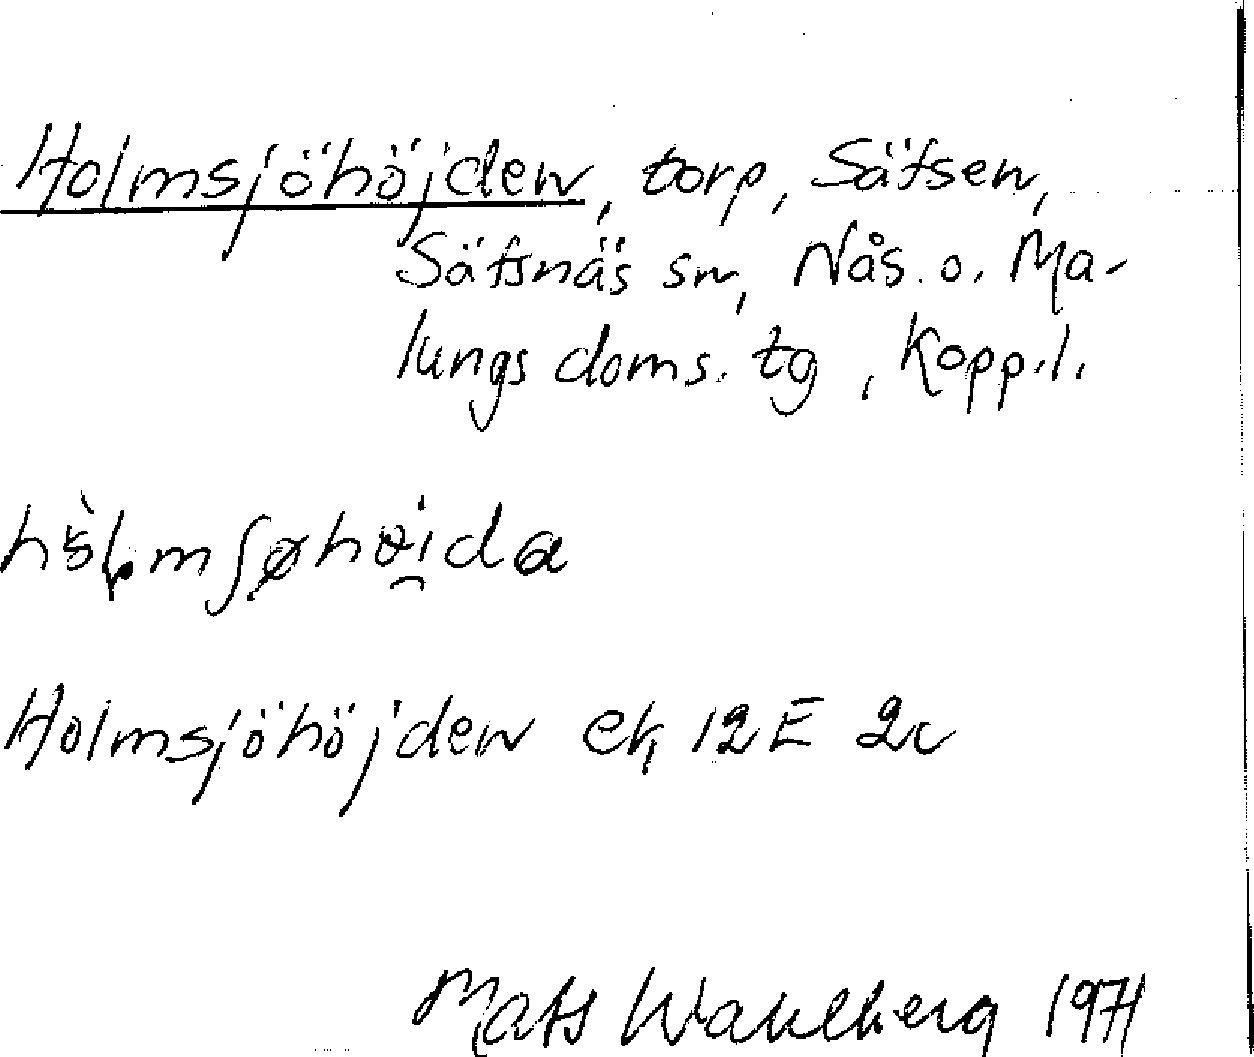 Holmsjöhöjden, torp, Sätsen,
Sätsnäs sn, Nås. o. Ma-
lungs doms. tg, Kopp.l.
Holmsjöhöjden ek 12E 2c
Mats Wahlberg 1971